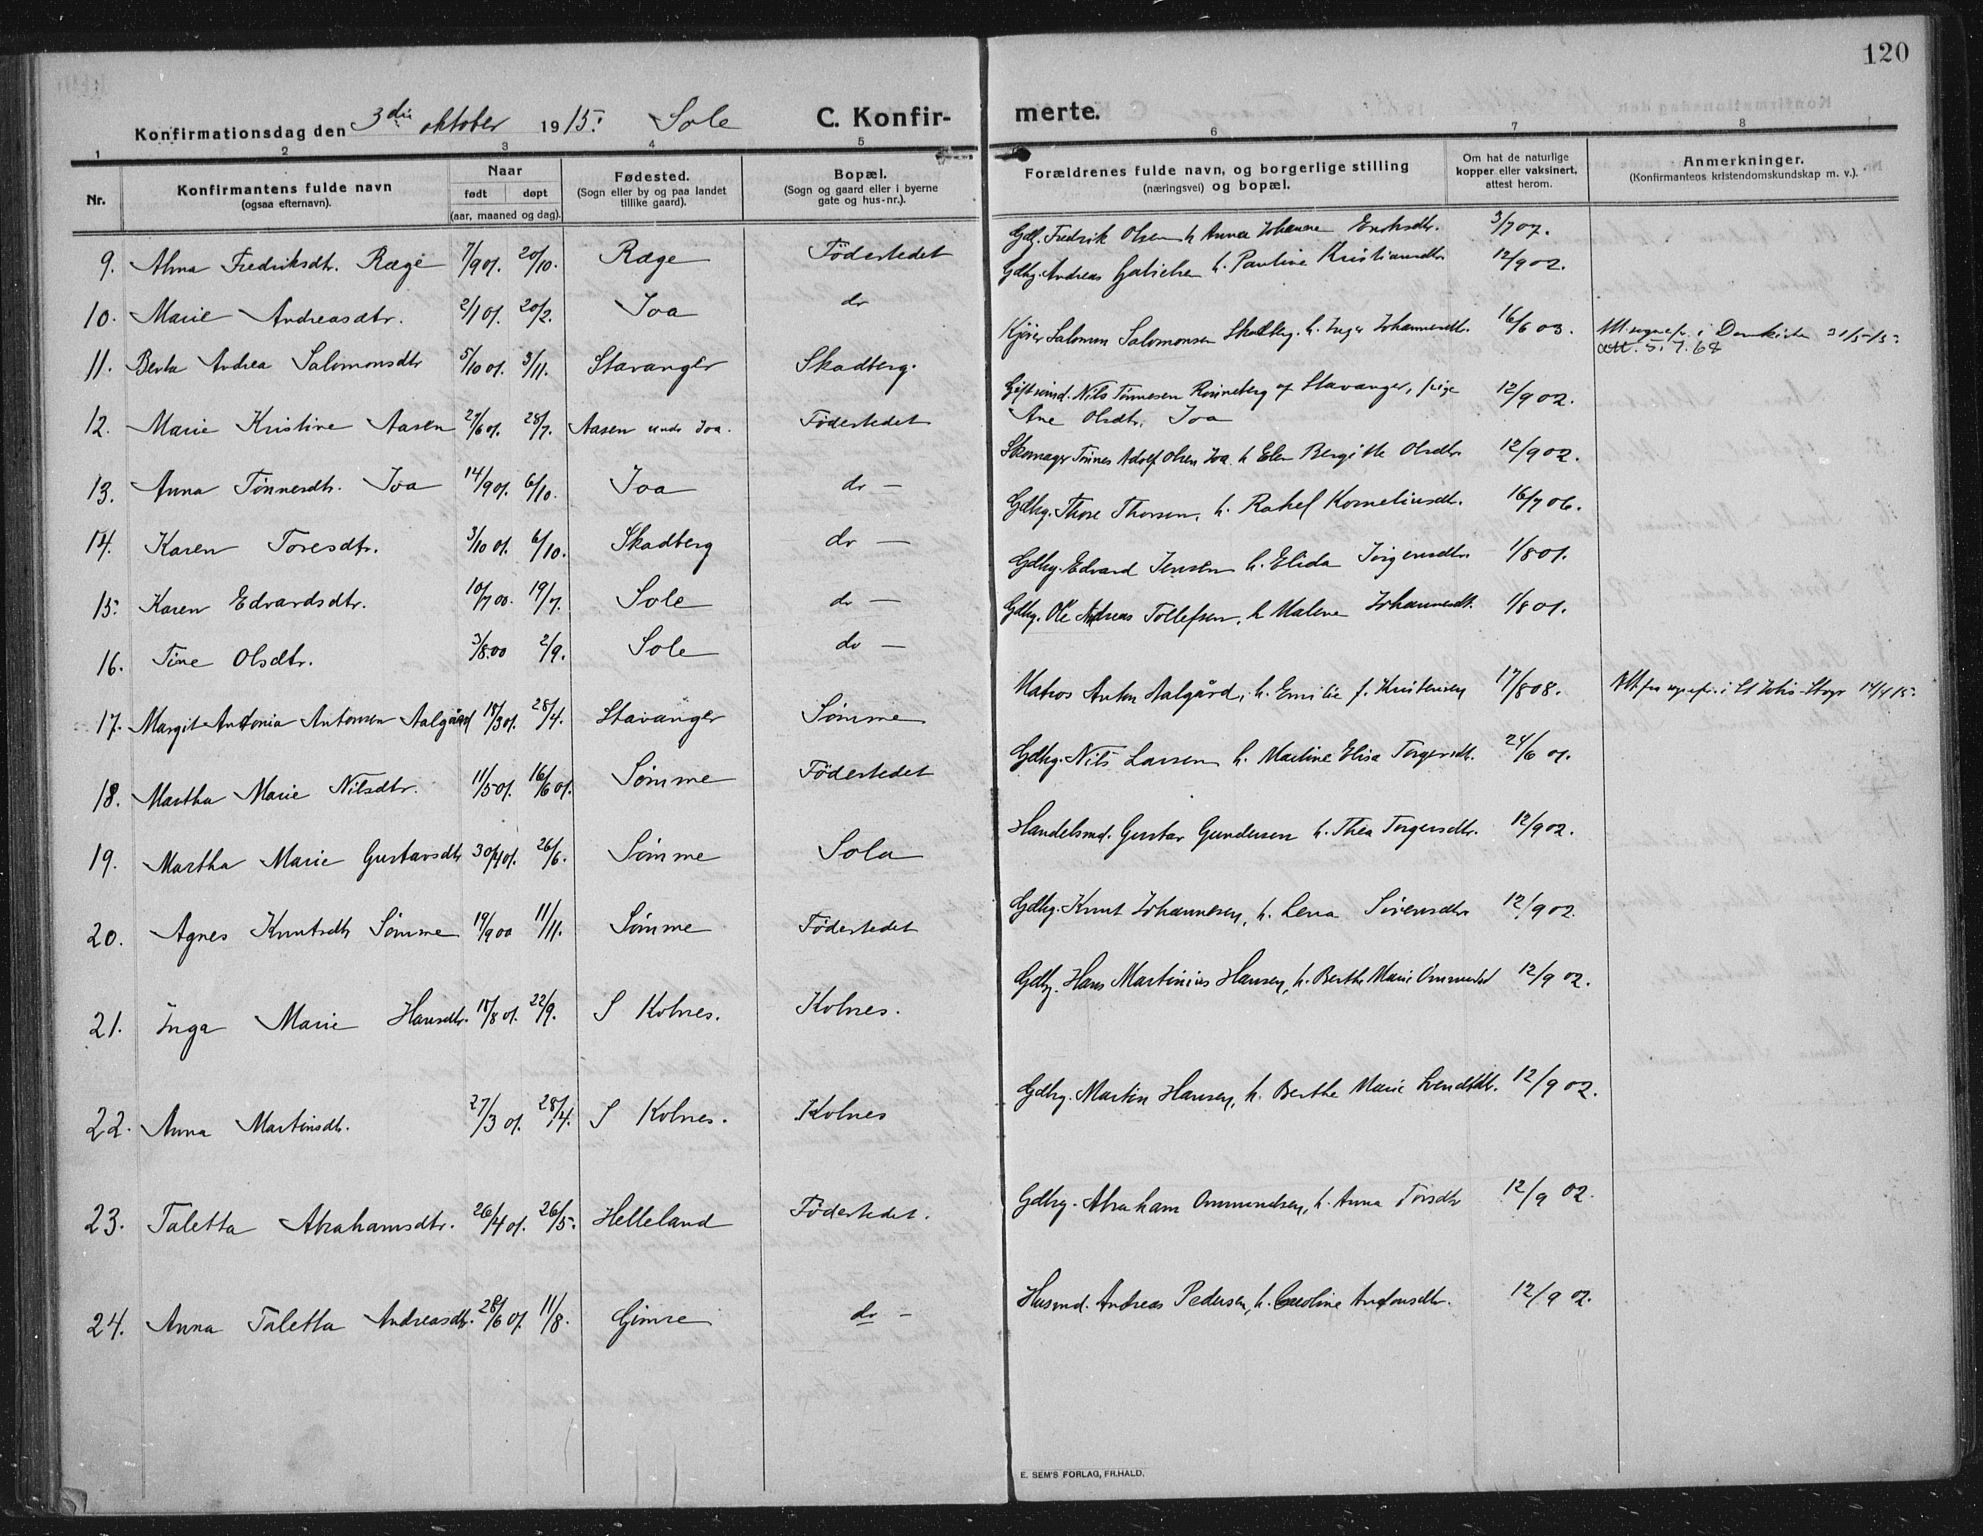 120
Konfirmationsdag den 3die oktober 1915. Sole C. Konfirmerte.
1 2 3 4 5 6 7 8
Nr. Konfirmantens fulde navn (ogsaa efternavn). Naar født døpt (aar, maaned og dag). Fødested. (Sogn eller by og paa landet tillike gaard). Bopæl. (Sogn og gaard eller i byerne gate og hus-nr.). Forældrenes fulde navn, og borgerlige stilling (næringsvei) og bopæl. Om hat de naturlige kopper eller vaksinert, attest herom. Anmerkninger. (Konfirmantens kristendomskundskap m. v.).
9. Alma Fredriksdtr. Ræge 7/9 01. 20/10. Ræge Födestedet Gdbg. Fredrik Olsen h. Anna Johanne Eriksdtr. 3/7 07.
10. Marie Andreasdtr. 2/1 01. 20/2. Joa do Gdbg. Andreas Gabrielsen h. Pauline Kristiansdtr 12/9 02.
11. Berta Andrea Salomonsdtr 5/10 01. 3/11. Stavanger Skadberg. Kjører Salomon Salomonsen Skadberg. h. Inger Johannesdtr. 16/6 03. Att. sognepr. i Domkirken 21/5 15.
att. 5.7.68
12. Marie Kristine Aasen 27/6 01. 28/7. Aasen under Joa. Födestedet Gift smd. Nils Tønnesen Rønneberg af Stavanger, pige
Ane Olsdtr. Joa 12/9 02.
13. Anna Tönnesdtr. Joa 14/9 01. 6/10. Joa do — Skomager Tönnes Adolf Olsen Joa h Elen Bergitte Olsdtr 12/9 02.
14. Karen Toresdtr. 3/10 01. 6/10. Skadberg do — Gdbg. Thore Thorsen, h. Rakel Korneliusdtr. 16/7 06.
15. Karen Edvardsdtr. 10/7 00. 19/7. Sole do — Gdbg. Edvard Jensen h. Elida Jörgensdtr 1/8 01.
16. Tine Olsdtr. 3/8 00 2/9. Sole do — Gdbg. Ole Andreas Tollefsen, h Malene Johannesdtr. 1/8 01.
17. Margit Antonia Antonsen Aalgård 18/3 01. 28/4. Stavanger Sömme Matros Anton Aalgård, h. Emilie f. Kristensen 17/8 08. Att. fra sognepr. i St Johs Stvgr 14/4 15.
18. Martha Marie Nilsdtr. 11/5 01. 16/6 01. Sömme Födestedet Gdbg. Nils Larsen h. Martine Elisa Torgersdtr. 24/6 01.
19. Martha Marie Gustavsdtr 30/4 01. 26/6. Sömme Sola Handelsmd. Gustav Gundersen h. Thea Torgersdtr. 12/9 02.
20. Agnes Knutsdtr Sömme 19/9 00 11/11. Sömme Födestedet Gdbg. Knut Johannesen, h. Lena Sörensdtr 12/9 02.
21. Inga Marie Hansdtr. 18/8 01. 22/9. S Kolnes. Kolnes. Gdbg. Hans Martinius Hansen, h. Berthe Marie Ommundsd 12/9 02.
22. Anna Martinsdtr. 27/3 01. 28/4. S Kolnes. Kolnes Gdbg. Martin Hansen, h. Berthe Marie Svendsdtr. 12/9 02.
23. Taletta Abrahamsdtr. 26/4 01. 26/5. Helleland Födestedet. Gdbg. Abraham Ommundsen, h. Anna Torsdtr 12/9 02.
24. Anna Taletta Andreasdtr. 28/6 01. 11/8. Gimre do — Husmd. Andreas Pedersen, h. Caroline Antonsdtr. 12/9 02.
E. SEM'S FORLAG, FR.HALD.